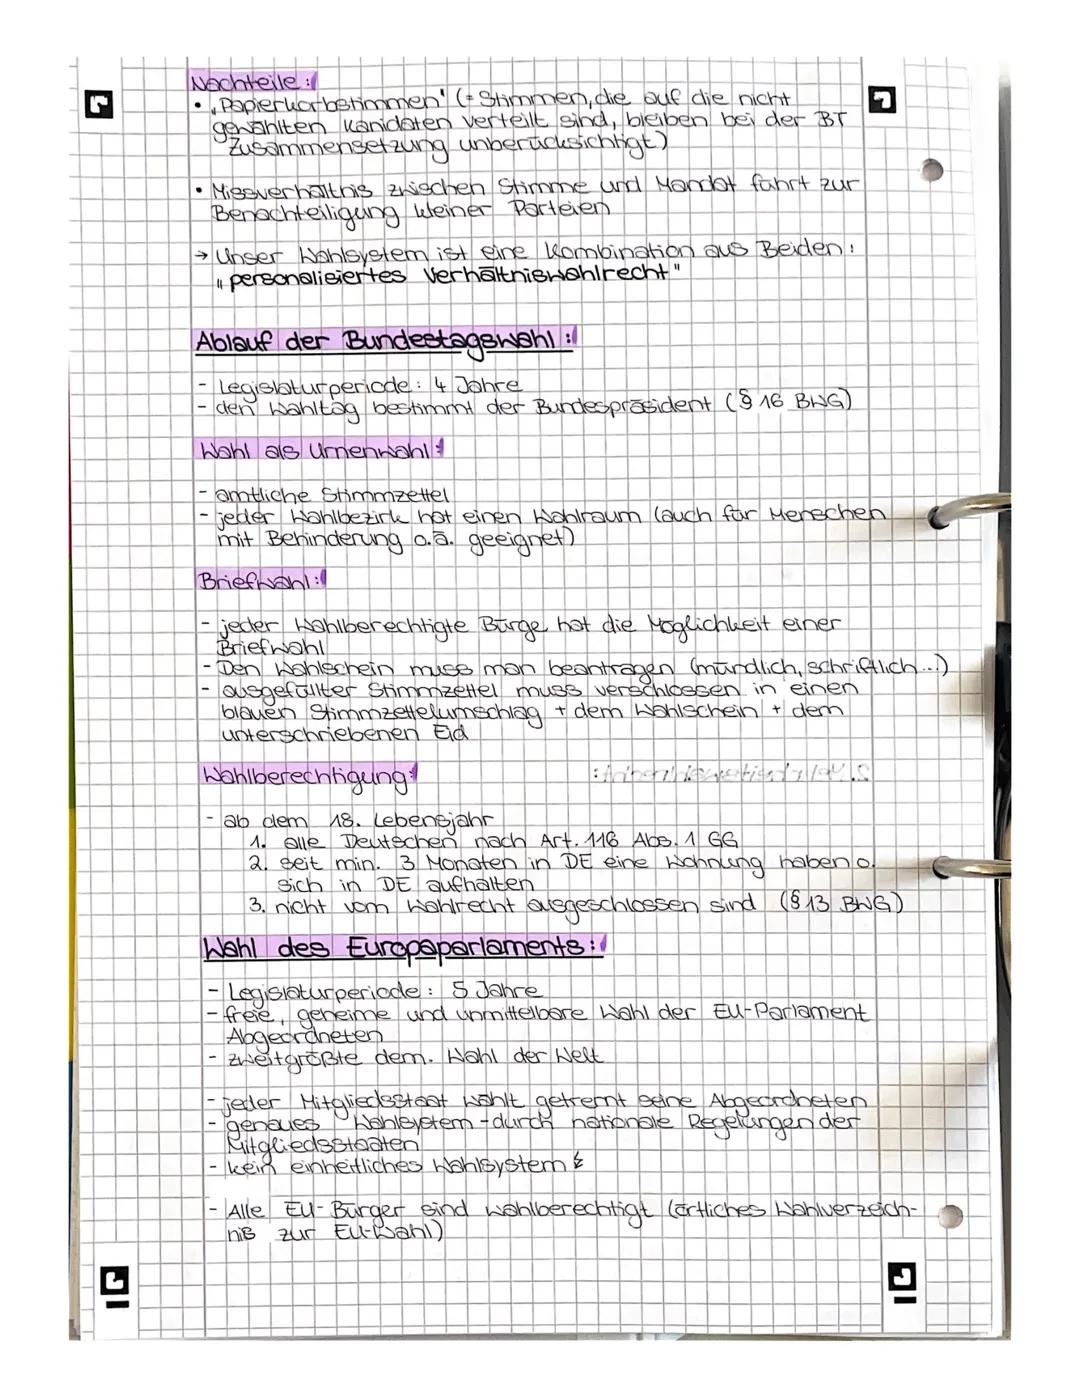 Nachteile:
• „Papierkorbstimmen" (= Stimmen, die auf die nicht
gewählten Kanidaten verteilt sind, bleiben bei der BT
Zusammensetzung unberücksichtigt)
• Missverhältnis zwischen Stimme und Mandat führt zur
Benachteiligung kleiner Parteien
→ Unser Wahlsystem ist eine Kombination aus Beiden:
„personalisiertes Verhältniswahlrecht"
Ablauf der Bundestagswahl:
- Legislaturperiode: 4 Jahre
- den Wahltag bestimmt der Bundespräsident (§ 16 BWG)
Wahl als Urnenwahl:
- amtliche Stimmzettel
- jeder Wahlbezirk hat einen Wahlraum (auch für Menschen
mit Behinderung o.ä. geeignet)
Briefwahl:
- jeder Wahlberechtigte Bürge hat die Möglichkeit einer
Briefwahl
- Den Wahlschein muss man beantragen (mündlich, schriftlich...)
- ausgefüllter Stimmzettel muss verschlossen in einen
blauen Stimmzettelumschlag + dem Wahlschein + dem
unterschriebenen Eid
Wahlberechtigung:
- ab dem 18. Lebensjahr
1. alle Deutschen nach Art. 116 Abs. 1 GG
2. seit min. 3 Monaten in DE eine Wohnung haben o.
sich in DE aufhalten
3. nicht vom Wahlrecht ausgeschlossen sind (§ 13 BWG)
Wahl des Europaparlaments:
- Legislaturperiode: 5 Jahre
- freie, geheime und unmittelbare Wahl der EU-Parlament
Abgeordneten
- zweitgrößte dem. Wahl der Welt
- jeder Mitgliedsstaat wählt getrennt seine Abgeordneten
- genaues Wahlsystem - durch nationale Regelungen der
Mitgliedsstaaten
- kein einheitliches Wahlsystem
- Alle EU-Bürger sind wahlberechtigt (örtliches Wahlverzeich-
nis zur EU-Wahl)